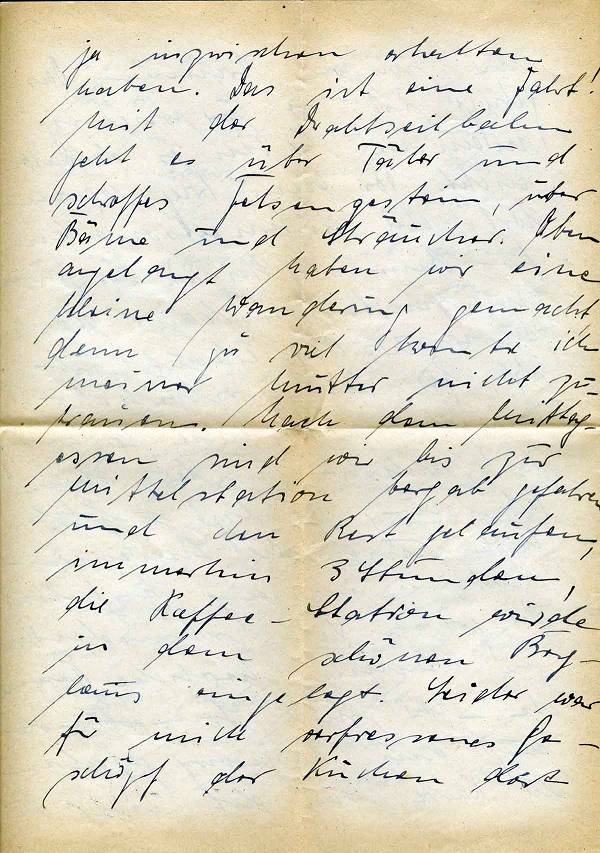 ja inzwischen erhalten
haben. Das ist eine Fahrt!
Mit der Drahtseilbahn
geht es über Täler und
schroffes Felsengestein, über
Bäume und Sträucher. Oben
angelangt haben wir eine
kleine Wanderung gemacht,
denn zu viel konnte ich
meiner Mutter nicht zu-
trauen. Nach dem Mittag-
essen sind wir bis zur
Mittelstation bergab gefahren
und den Rest gelaufen,
immerhin 3 Stunden,
die Kaffee-Station wurde
in dem schönen Berg-
haus eingelegt. Leider war
für mich verfressenes Ge-
schöpf der Kuchen dort